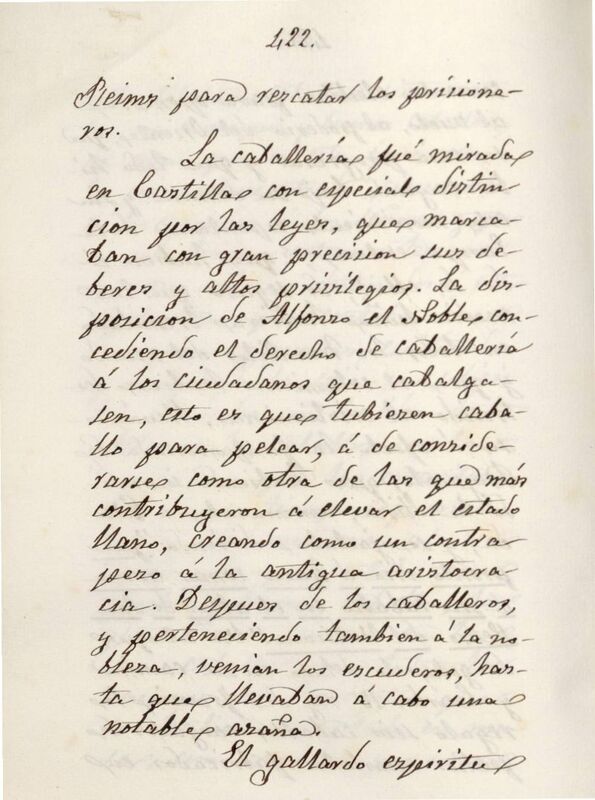 422.
Reims para rescatar los prisione-
ros.
La caballería fué mirada
en Castilla con especial distin
cion por las leyes, que marca-
ban con gran precision sus de-
beres y altos privilegios. La dis-
posicion de Alfonso el Noble con-
cediendo el derecho de caballería
á los ciudadanos que cabalga-
sen, esto es que tubiesen caba-
llo para pelear, á de conside-
rarse como otra de las que más
contribuyeron á elevar el estado
llano, creando como un contra
peso á la antigua aristocra-
cia. Despues de los caballeros,
y perteneciendo tambien á la no-
bleza, venian los escuderos, has-
ta que llevaban á cabo una
notable azaña.
El gallardo espiritu